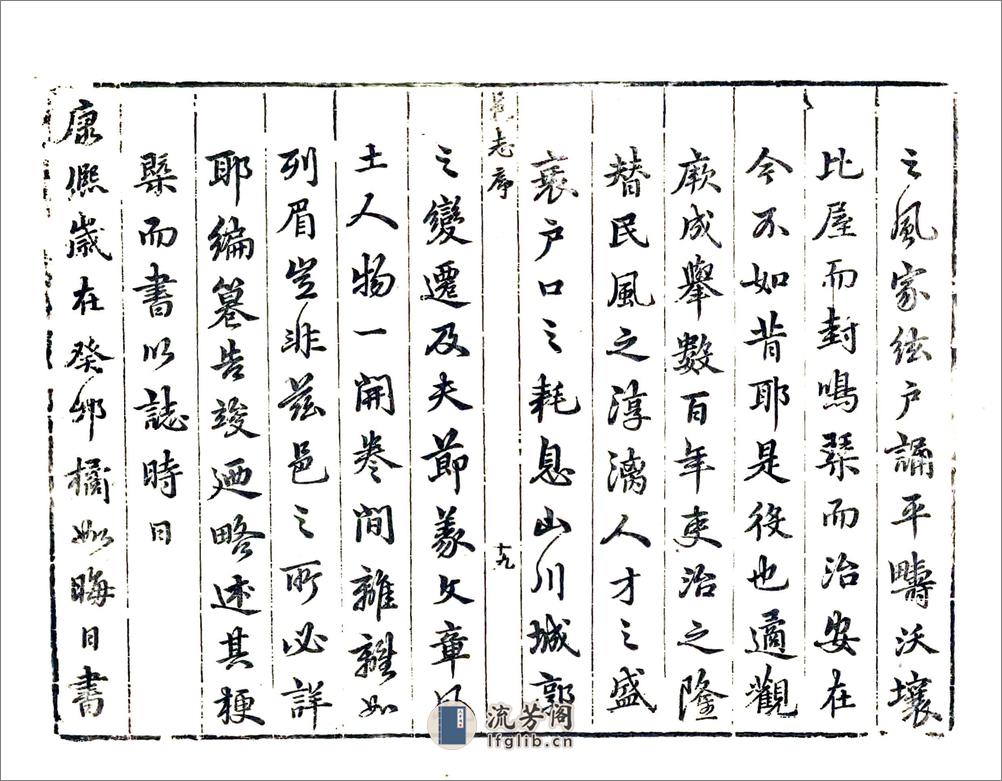 之風家絃户誦平疇沃壤
比屋而封鳴琴而治安在
今不如昔耶是役也遹觀
厥成舉數百年吏治之隆
替民風之淳漓人才之盛
衰户口之耗息山川城郭
邑志序
十九
之變遷及夫節義文章以
土人物一開卷間離離如
列眉豈非茲邑之所必詳
耶編纂告竣迺略述其梗
槩而書以誌時日
康熈歲在癸卯橘如晦日書
流芳阁
lfglib.cn